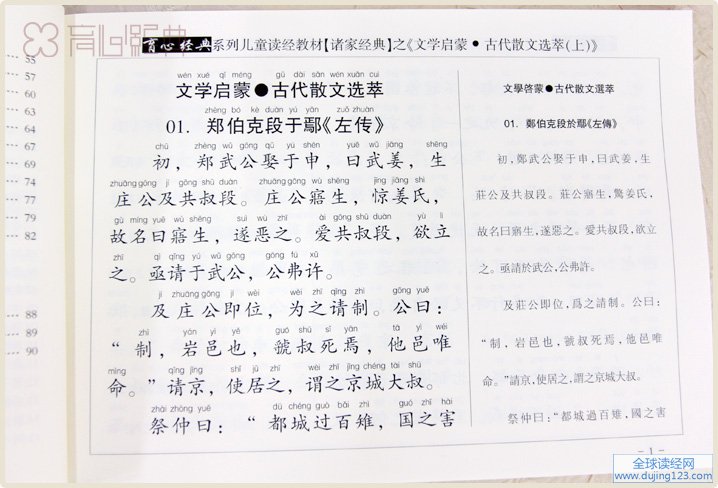 育心经典
育心 经典系列儿童读经教材【诸家经典】之《文学启蒙●古代散文选萃(上)》
... 55
... 60
... 63
... 64
... 67
... 69
... 74
... 77
... 79
... 82
... 88
... 89
... 90
wén xué qǐ méng gǔ dài sǎn wén xuǎn cuì
文学启蒙●古代散文选萃
zhèng bó kè duàn yú yān zuǒ zhuàn
01. 郑伯克段于鄢《左传》
chū zhèng wǔ gōng qǔ yú shēn yuē wǔ jiāng shēng
初，郑武公娶于申，曰武姜，生
zhuāng gōng jí gōng shū duàn zhuāng gōng wù shēng jīng jiāng shì
庄公及共叔段。庄公寤生，惊姜氏，
gù míng yuē wù shēng suì wù zhī ài gōng shū duàn yù lì
故名曰寤生，遂恶之。爱共叔段，欲立
zhī qì qǐng yú wǔ gōng gōng fú xǔ
之。亟请于武公，公弗许。
jí zhuāng gōng jí wèi wèi zhī qǐng zhì gōng yuē
及庄公即位，为之请制。公曰：
zhì yán yì yě guó shū sǐ yān tā yì wéi
“制，岩邑也，虢叔死焉，他邑唯
mìng qǐng jīng shǐ jū zhī wèi zhī jīng chéng tài shū
命。”请京，使居之，谓之京城大叔。
zhài zhòng yuē dū chéng guò bǎi zhì guó zhī hài
祭仲曰：“都城过百雉，国之害
文學啓蒙●古代散文選萃
01. 鄭伯克段於鄢《左傳》
初，鄭武公娶于申，曰武姜，生
莊公及共叔段。莊公寤生，驚姜氏，
故名曰寤生，遂惡之。愛共叔段，欲立
之。亟請於武公，公弗許。
及莊公即位，爲之請制。公曰：
“制，岩邑也，虢叔死焉，他邑唯
命。”請京，使居之，謂之京城大叔。
祭仲曰：“都城過百雉，國之害
- 1 -
全球读经网
www.dujing123.com